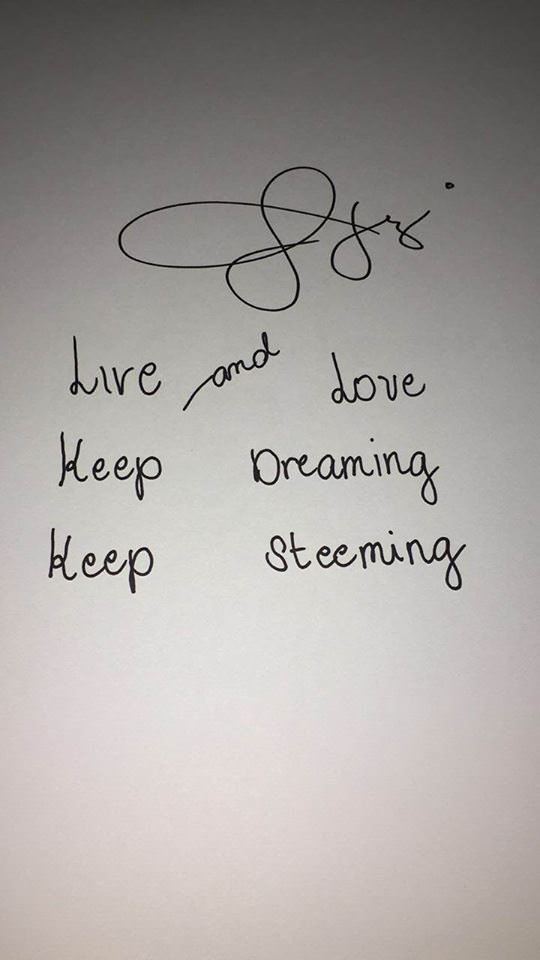 Live and Love
Keep Dreaming
Keep Steeming